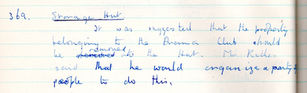 369. Storage Hut
It was suggested that the property
belonging to the Drama Club should
be removed to the Hut. Mr
said that he would organize a party of
people to do this.